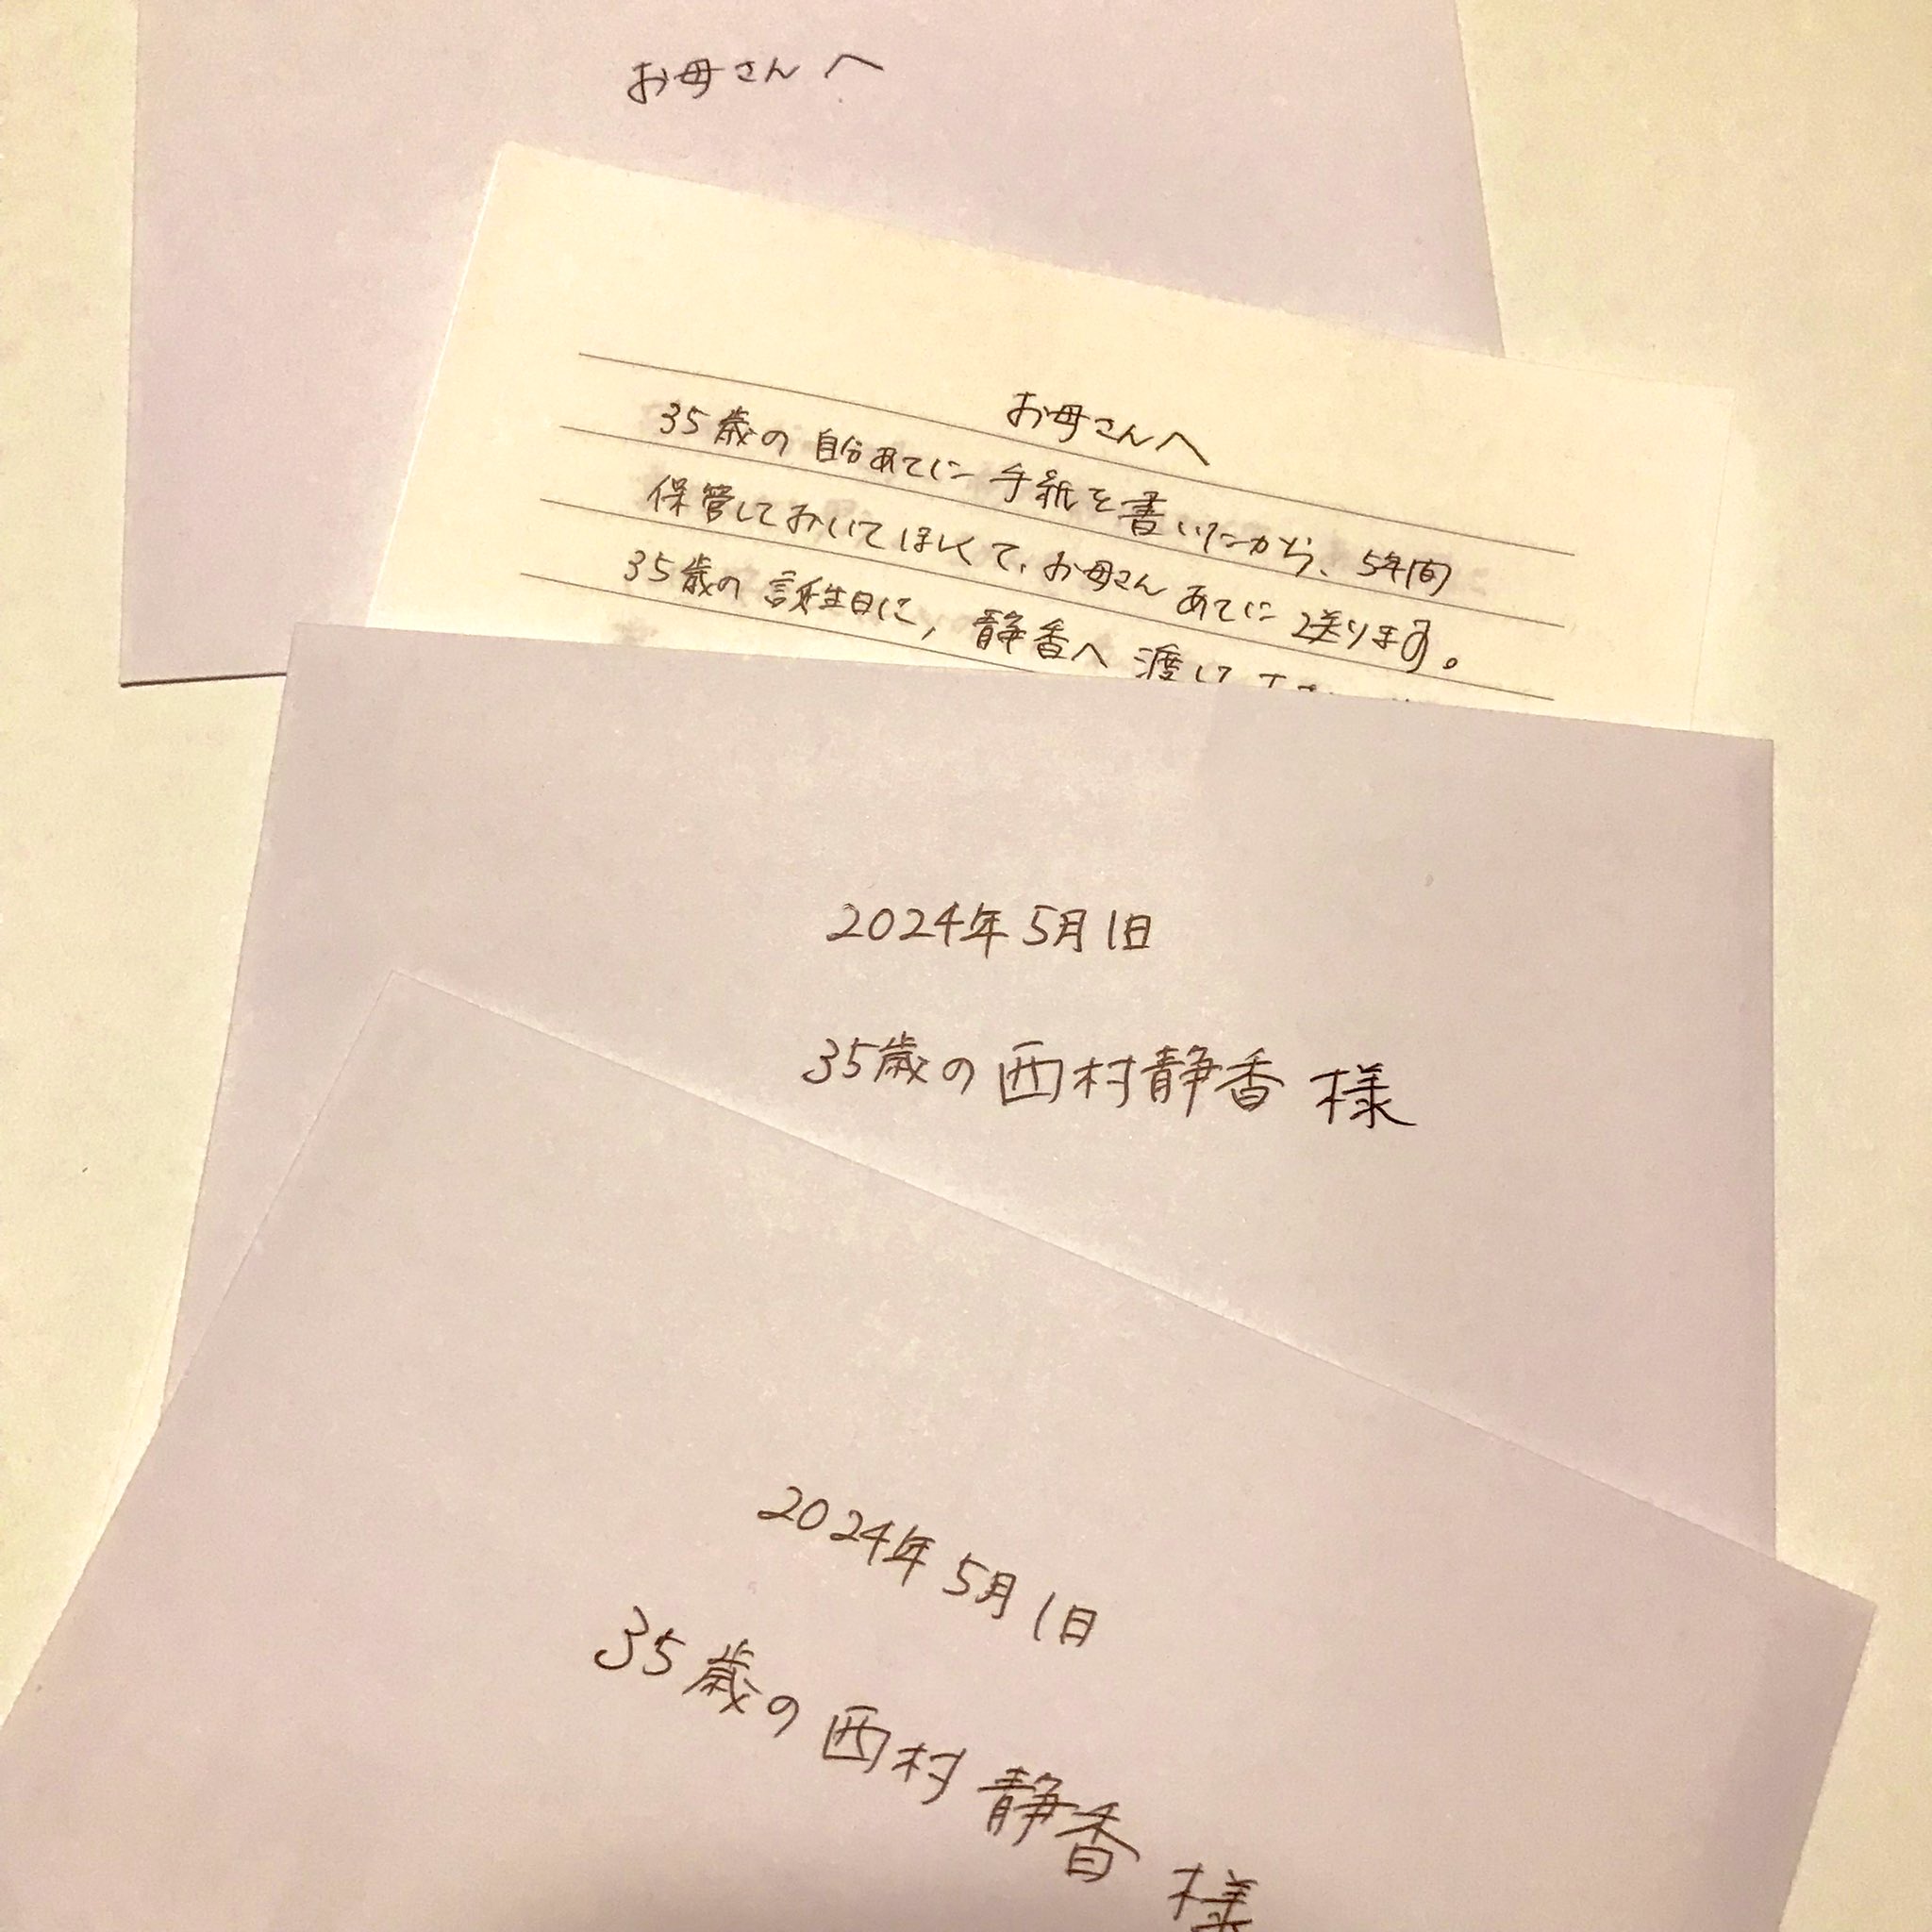 お母さんへ
お母さんへ
35歳の自分あてに手紙を書いたから、5年間
保管しておいてほしくて、お母さんあてに送ります。
35歳の誕生日に、静香へ渡して
2024年5月1日
35歳の西村静香様
2024年5月1日
35歳の西村静香様